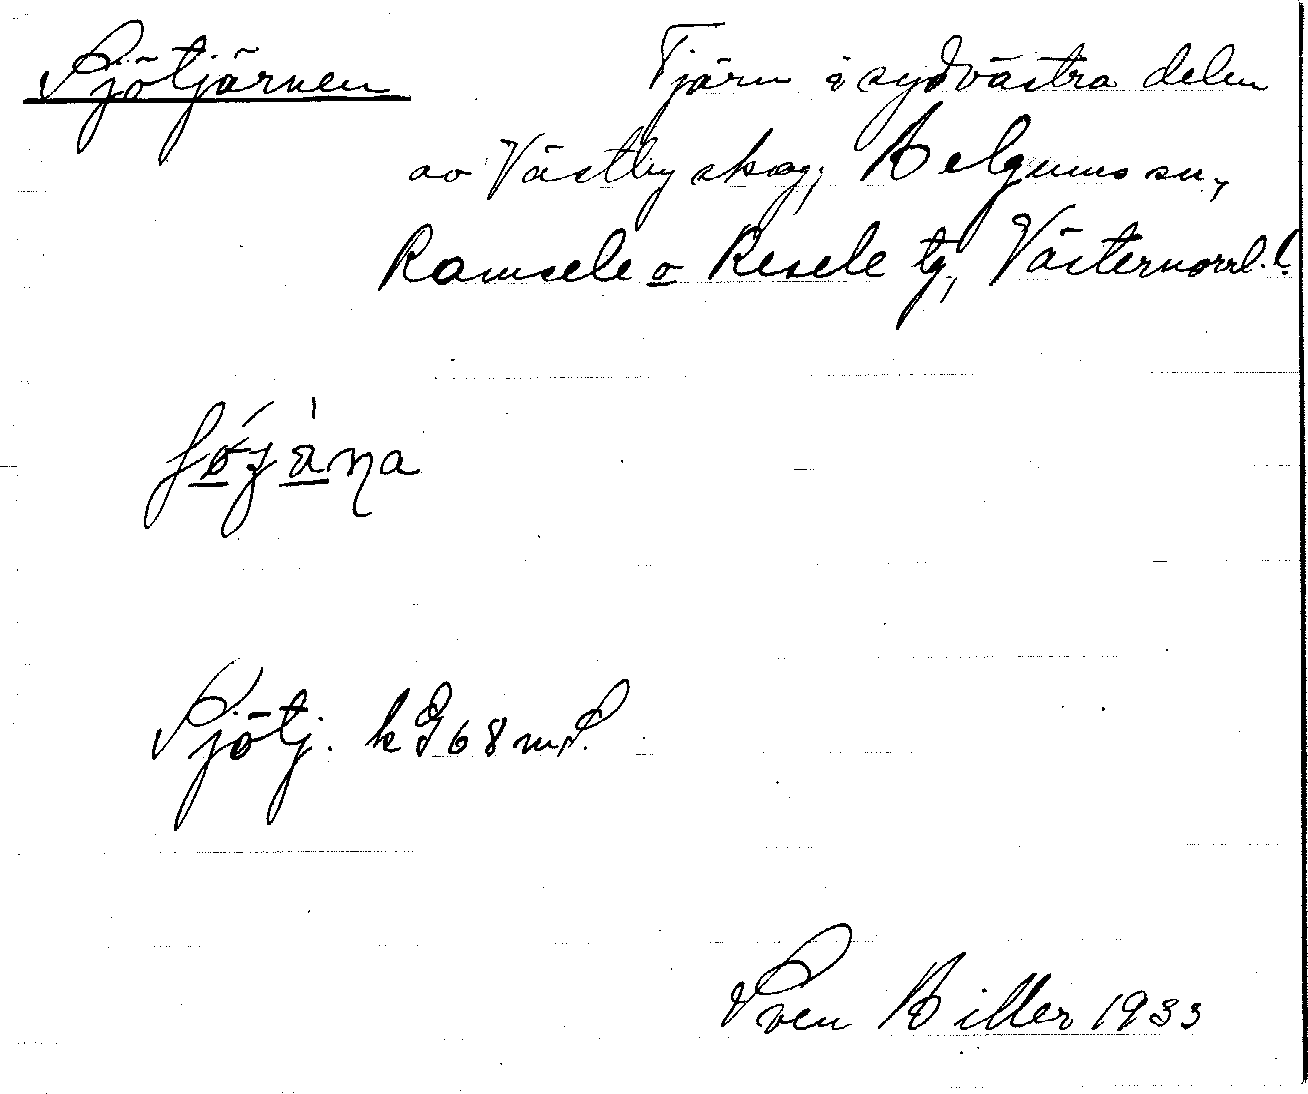 Sjötjärnen
Tjärn i sydvästra delen
av Västby skog, Helgums sn,
Ramsele o Resele tg, Västernorrl. l.
Sjötj. kG 68 m S.
Sven Hiller 1933